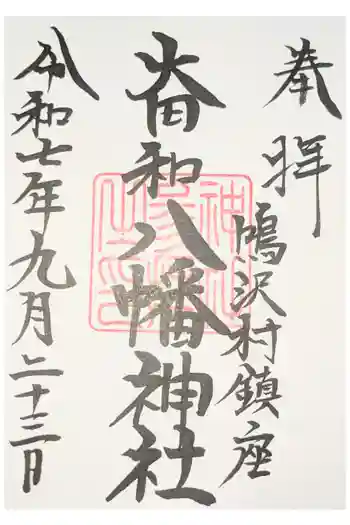 奉拝
鳴沢村鎮座
大田和八幡神社
令和七年九月二十三日